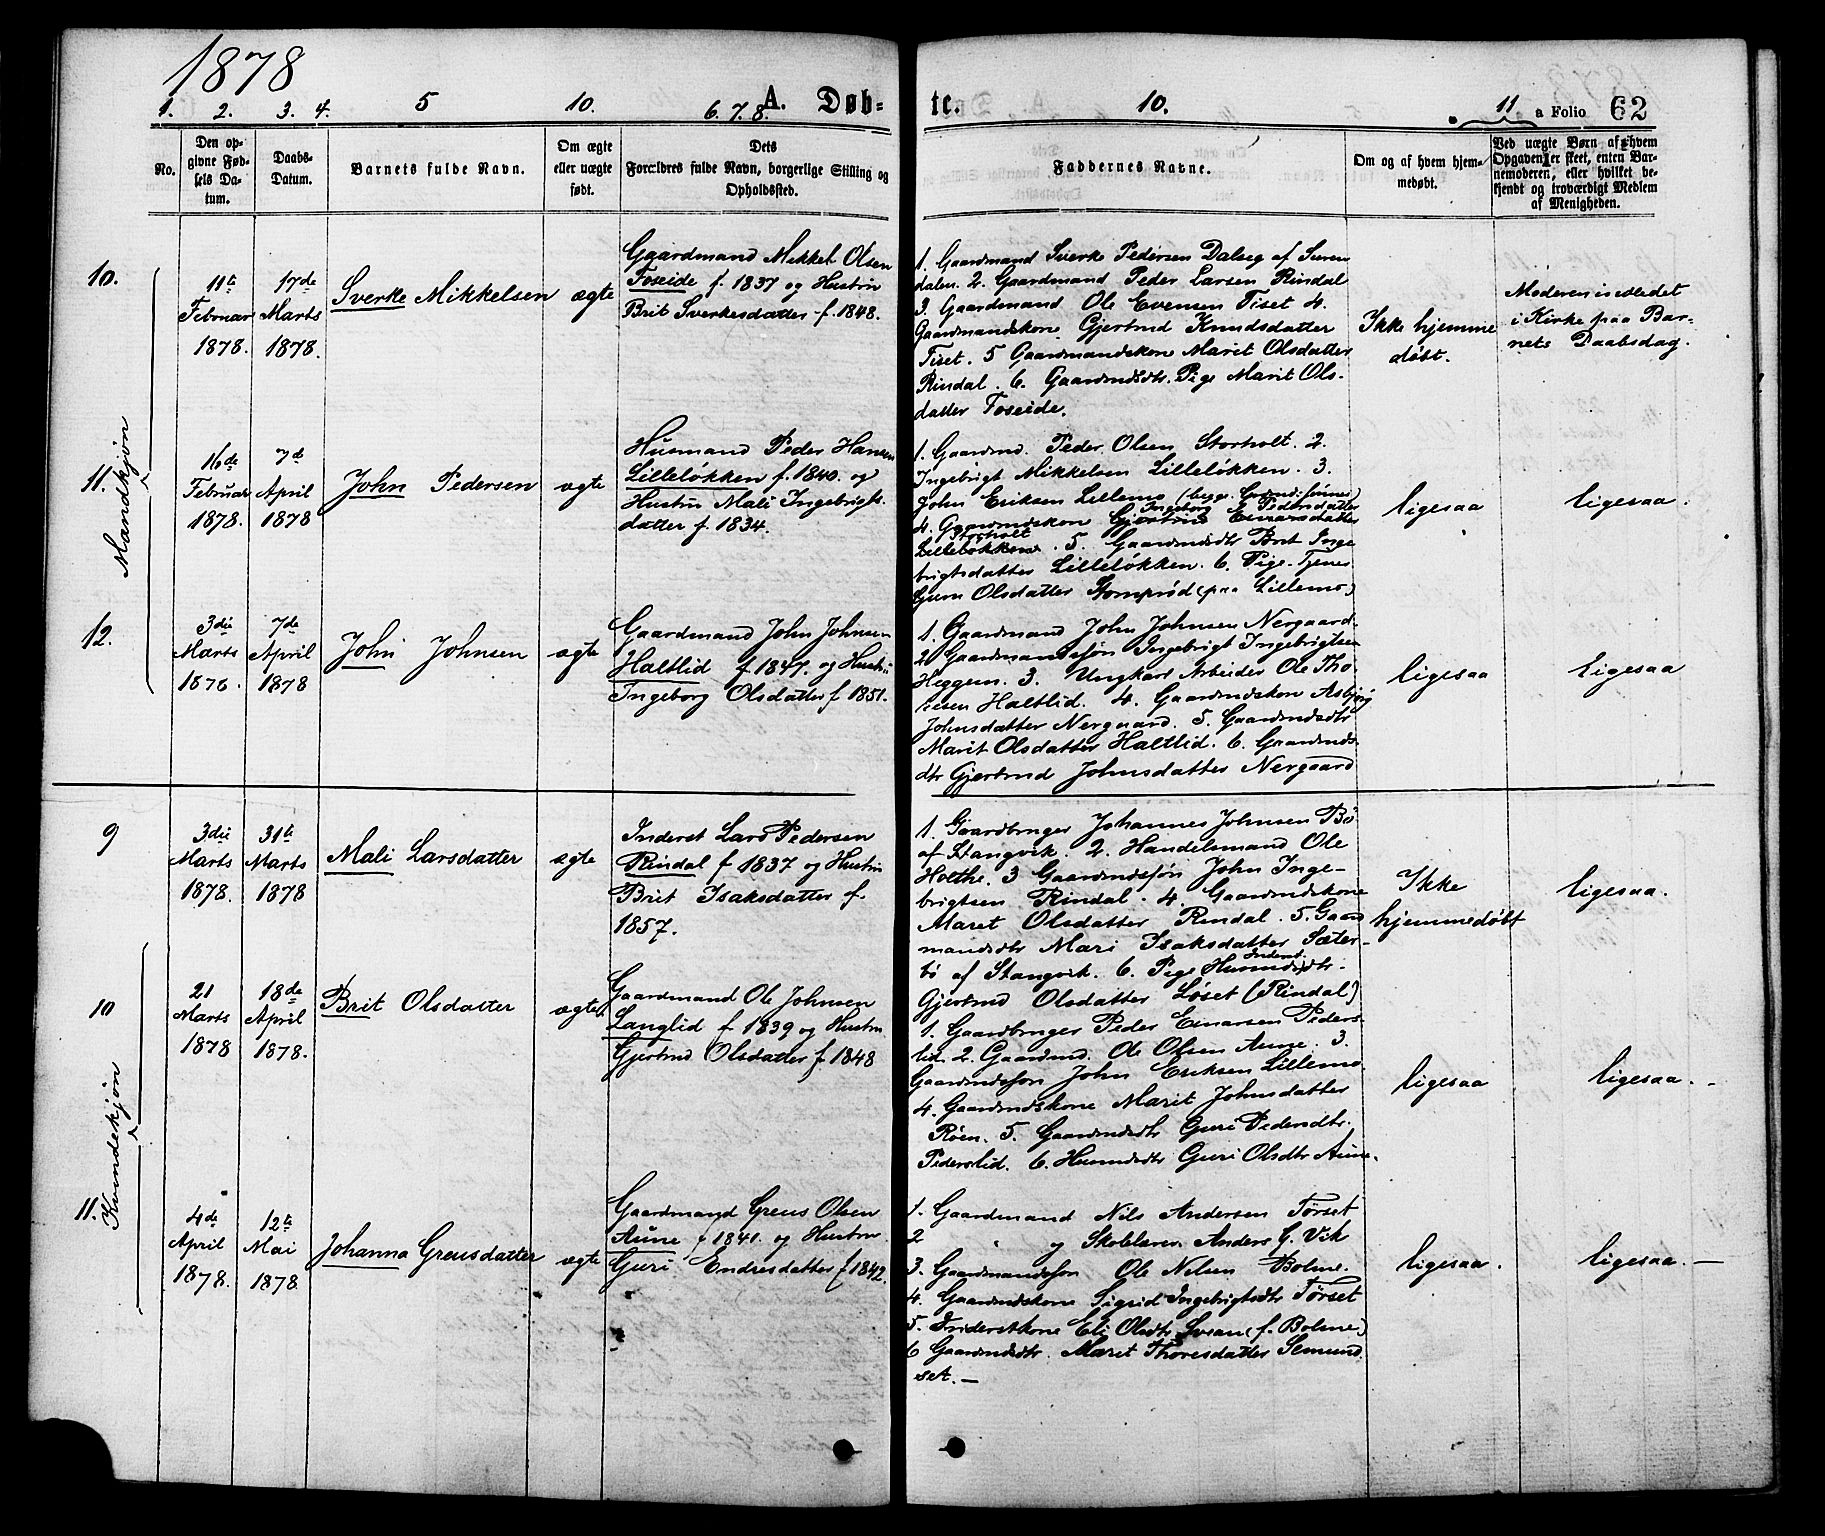 1878
1. 2. 3. 4. 5 10. 6. 7. 8. A. Døb-
No.
Den op-
givne Fød-
sels Da-
tum.
Daabs-
Datum.
Barnets fulde Navn.
Om ægte
eller uægte
født.
Dets
Forældres fulde Navn, borgerlige Stilling og
Opholdssted.
te. 10. 11 a Folio 62
Faddernes Navne.
Om og af hvem hjem-
medøbt.
Ved uægte Børn af hvem
Opgaven er skeet, enten Bar-
nemoderen, eller hvilket be-
kjendt og troværdigt Medlem
af Menigheden.
Mandkjøn
10.
11te
Februar
1878.
17de
Marts
1878.
Sverke Mikkelsen
ægte
Gaardmand Mikkel Olsen
Foseide f. 1837 og Hustru
Brit Sverkesdatter f. 1848.
1. Gaardmand Sverke Pedersen Dalseg af Suren
dalen. 2. Gaardmand Peder Larsen Rindal
3. Gaardmand Ole Evensen Tiset 4.
Gaardmandskone Gjertrud Knudsdatter
Tiset. 5 Gaardmandskone Marit Olsdatter
Rindal. 6. Gaardmdsdtr. Pige Marit Ols-
datter Foseide.
Ikke hjemme
døbt.
Moderen indledet
i Kirke paa Bar-
nets Daabsdag.
11.
16de
Februar
1878.
7de
April
1878
John Pedersen
ægte
Husmand Peder Hansen
Lilleløkken f. 1840. og
Hustru Mali Ingebrigts-
datter f. 1834.
1. Gaardmd. Peder Olsen Storholt. 2.
Ingebrigt Mikkelsen Lilleløkken. 3.
John Eriksen Lillemo (begge Grdmd.sønner)
Ingeborg Pedersdatter
4. Gaardmdskone Gjertrud Einarsdatter
Storholt
Lilleløkken. 5. Gaardmdsdtr Brit Inge
brigtsdatter Lilleløkken. 6. Pige-Tjenes
Guru Olsdatter (paa Lillemo)
ligesaa
ligesaa.
12.
3die
Marts
1878.
7de
April
1878
John Johnsen
ægte
Gaardmand John Johnsen
Haltlid f. 1847. og Hustru
Ingeborg Olsdatter f 1851.
1. Gaardmand John Johnsen Nergaard.
2 Gaardmandssøn Ingebrigt Ingebrigtsen
Heggem. 3. Ungkarl Arbeider Ole Tho
resen Haltlid. 4. Gaardmdskone Asbjørg
Johnsdatter Nergaard. 5. Gaardmdsdtr
Marit Olsdatter Haltlid. 6. Gaardmds-
dtr Gjertrud Johnsdatter Nergaard
ligesaa
ligesaa
Kvindekjøn
9
3die
Marts
1878.
31te
Marts
1878
Mali Larsdatter
ægte
Inderst Lars Pedersen
Rindal f 1837 og Hustru
Brit Isaksdatter f.
1857.
1. Gaardbruger Johannes Johnsen Bø
af Stangvik. 2. Handelsmand Ole
Holthe. 3 Gaardmdssøn John Inge-
brigtsen Rindal. 4. Gaardmdskone
Maret Olsdatter Rindal. 5. Gaard
mandsdtr Mari Isaksdatter Sæter-
Inderst.
bø af Stangvik. 6. Pige Husmdsdtr.
Gjertrud Olsdatter Løset (Rindal)
Ikke
hjemmedøbt
ligesaa.
10
21
Marts
1878
18de
April
1878.
Brit Olsdatter
ægte
Gaardmand Ole Johnsen
Langlid f 1839 og Hustru
Gjertrud Olsdatter f 1848
1. Gaardbruger Peder Einarsen Peders-
lid. 2. Gaardmd. Ole Olsen Aune. 3.
Gaardmdssøn John Eriksen Lillemo.
4. Gaardmdskone Marit Johnsdatter
Røen. 5. Gaardmdsdtr Guri Pedersdtr.
Pederslid. 6. Husmdsdtr Guri Olsdtr Aune.
ligesaa
ligesaa. -
11.
4de
April
1878.
12te
Mai
1878
Johanna Greusdatter
ægte
Gaardmand Greus Olsen
Aune f 1841. og Hustru
Guri Endresdatter f 1842.
1. Gaardmand Nils Andersen Tørset
2 " og Skolelærer Anders G. Vik
3. Gaardmandssøn Ole Nelsen Bolme.
4. Gaardmdskone Sigrid Ingebrigtsdtr Tørset
5. Inderstkone Eli Olsdtr Svean (f. Bolme)
6 Gaardmdsdtr. Maret Thoresdatter Semund
set. -
ligesaa.
ligesaa. -